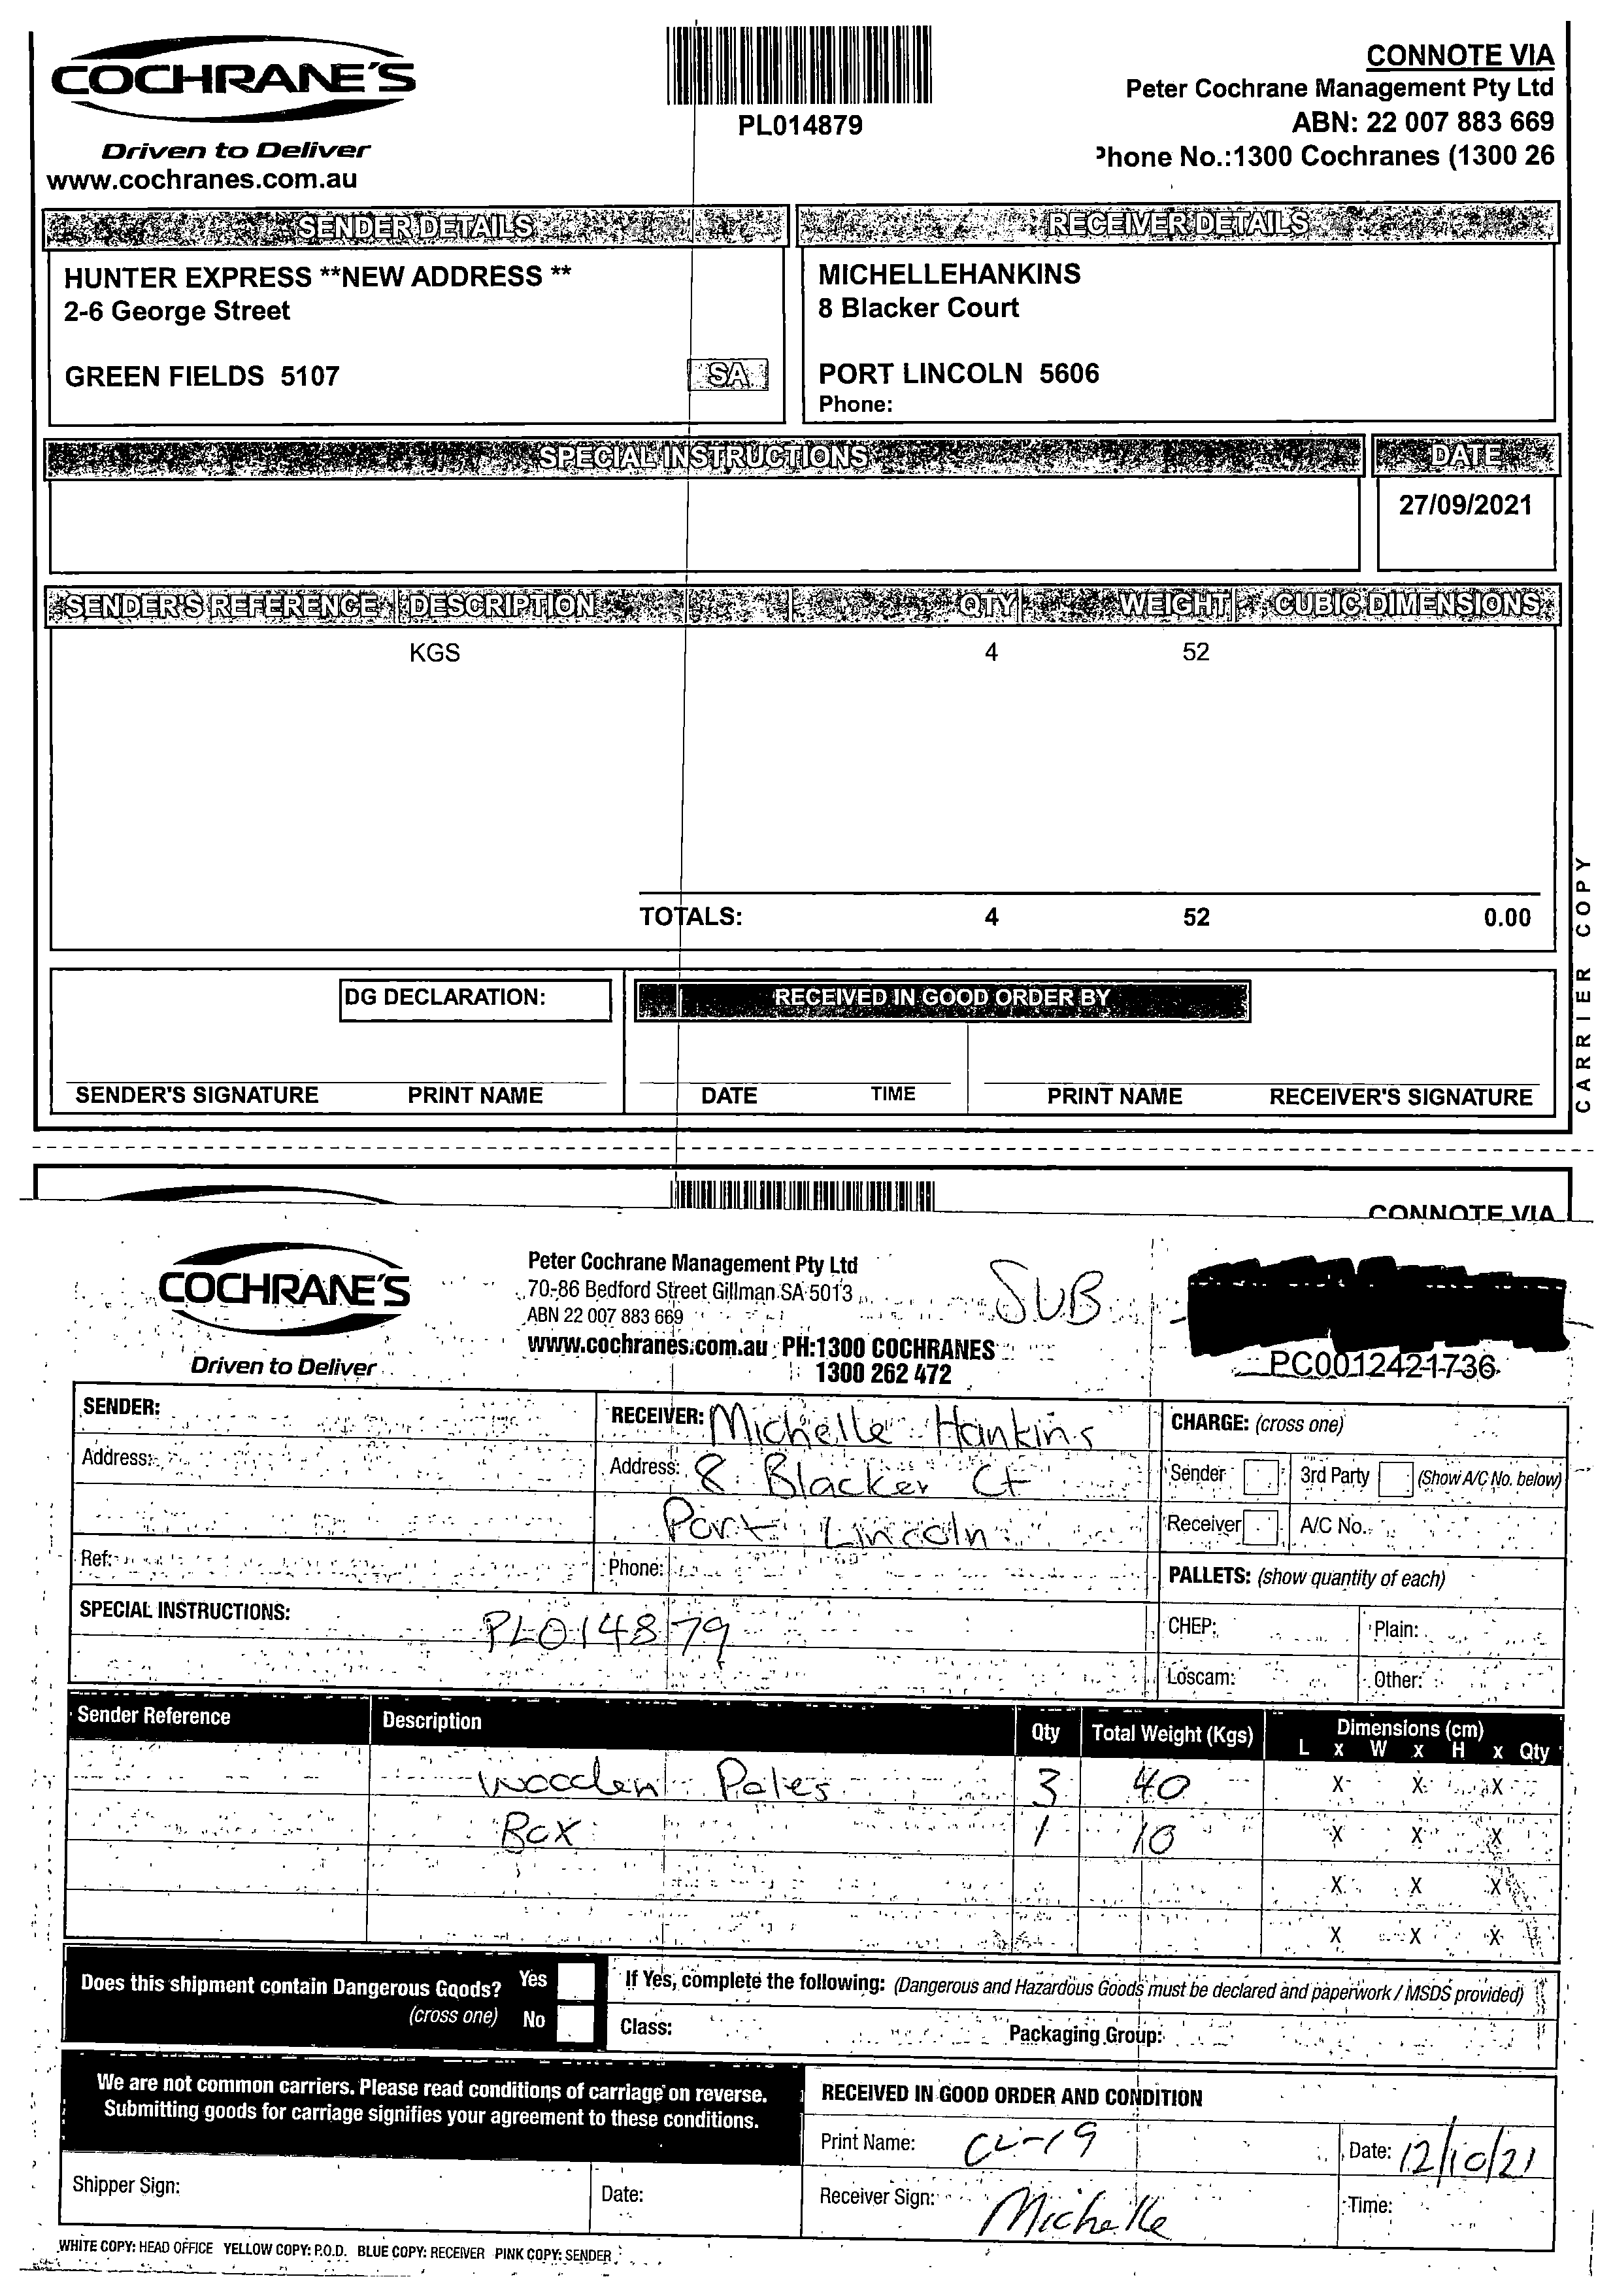 COCHRANE'S
Driven to Deliver
www.cochranes.com.au
PL014879
CONNOTE VIA
Peter Cochrane Management Pty Ltd
ABN: 22 007 883 669
Phone No.:1300 Cochranes (1300 26
SENDER DETAILS
HUNTER EXPRESS **NEW ADDRESS **
2-6 George Street
GREEN FIELDS 5107
SA
RECEIVER DETAILS
MICHELLEHANKINS
8 Blacker Court
PORT LINCOLN 5606
Phone:
SPECIAL INSTRUCTIONS
DATE
27/09/2021
SENDER'S REFERENCE DESCRIPTION QTY WEIGHT CUBIC DIMENSIONS
KGS 4 52
TOTALS: 4 52 0.00
DG DECLARATION:
RECEIVED IN GOOD ORDER BY
SENDER'S SIGNATURE PRINT NAME DATE TIME PRINT NAME RECEIVER'S SIGNATURE
CARRIER COPY
CONNOTE VIA
COCHRANE'S
Driven to Deliver
Peter Cochrane Management Pty Ltd
70-86 Bedford Street Gillman SA 5013
ABN 22 007 883 669
www.cochranes.com.au PH:1300 COCHRANES
1300 262 472
SUB
PC0012421736
SENDER:
Address:
Ref:
RECEIVER: Michelle Hankins
Address: 8 Blacker Ct
Port Lincoln
Phone:
CHARGE: (cross one)
Sender 3rd Party (Show A/C No. below)
Receiver A/C No.
PALLETS: (show quantity of each)
CHEP: Plain:
Loscam: Other:
SPECIAL INSTRUCTIONS:
PL014879
Sender Reference Description Qty Total Weight (Kgs) Dimensions (cm)
L x W x H x Qty
Wooden Poles 3 40 X X X
Box 1 10 X X X
X X X
X X X
Does this shipment contain Dangerous Goods? Yes
(cross one) No
If Yes, complete the following: (Dangerous and Hazardous Goods must be declared and paperwork / MSDS provided)
Class: Packaging Group:
We are not common carriers. Please read conditions of carriage on reverse.
Submitting goods for carriage signifies your agreement to these conditions.
Shipper Sign: Date:
RECEIVED IN GOOD ORDER AND CONDITION
Print Name: CV-19 Date: 12/10/21
Receiver Sign: Michelle Time:
WHITE COPY: HEAD OFFICE YELLOW COPY: P.O.D. BLUE COPY: RECEIVER PINK COPY: SENDER